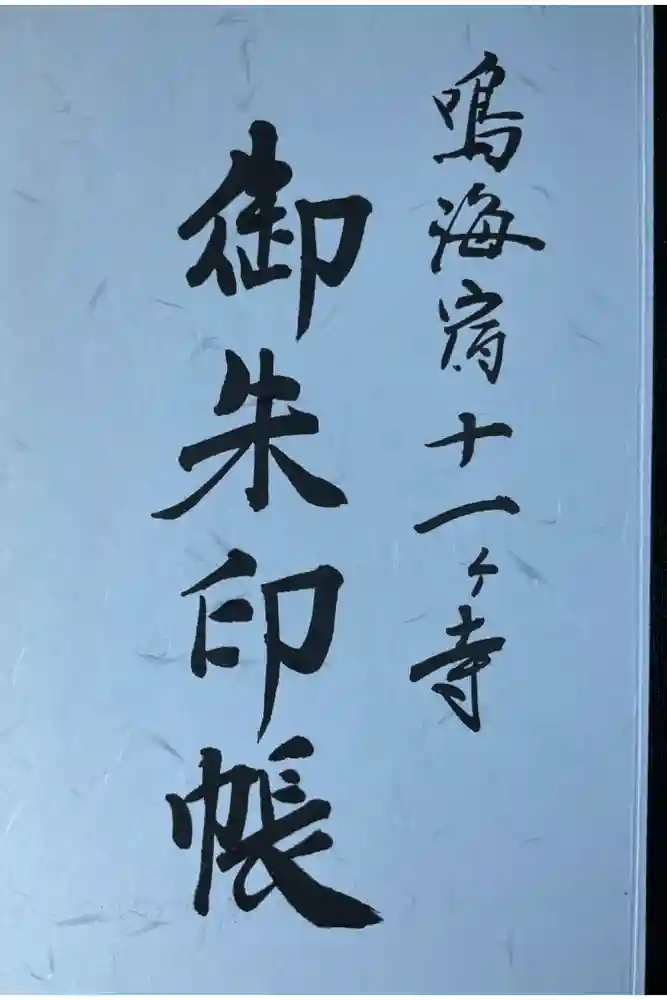 鳴海宿十一ヶ寺
御朱印帳